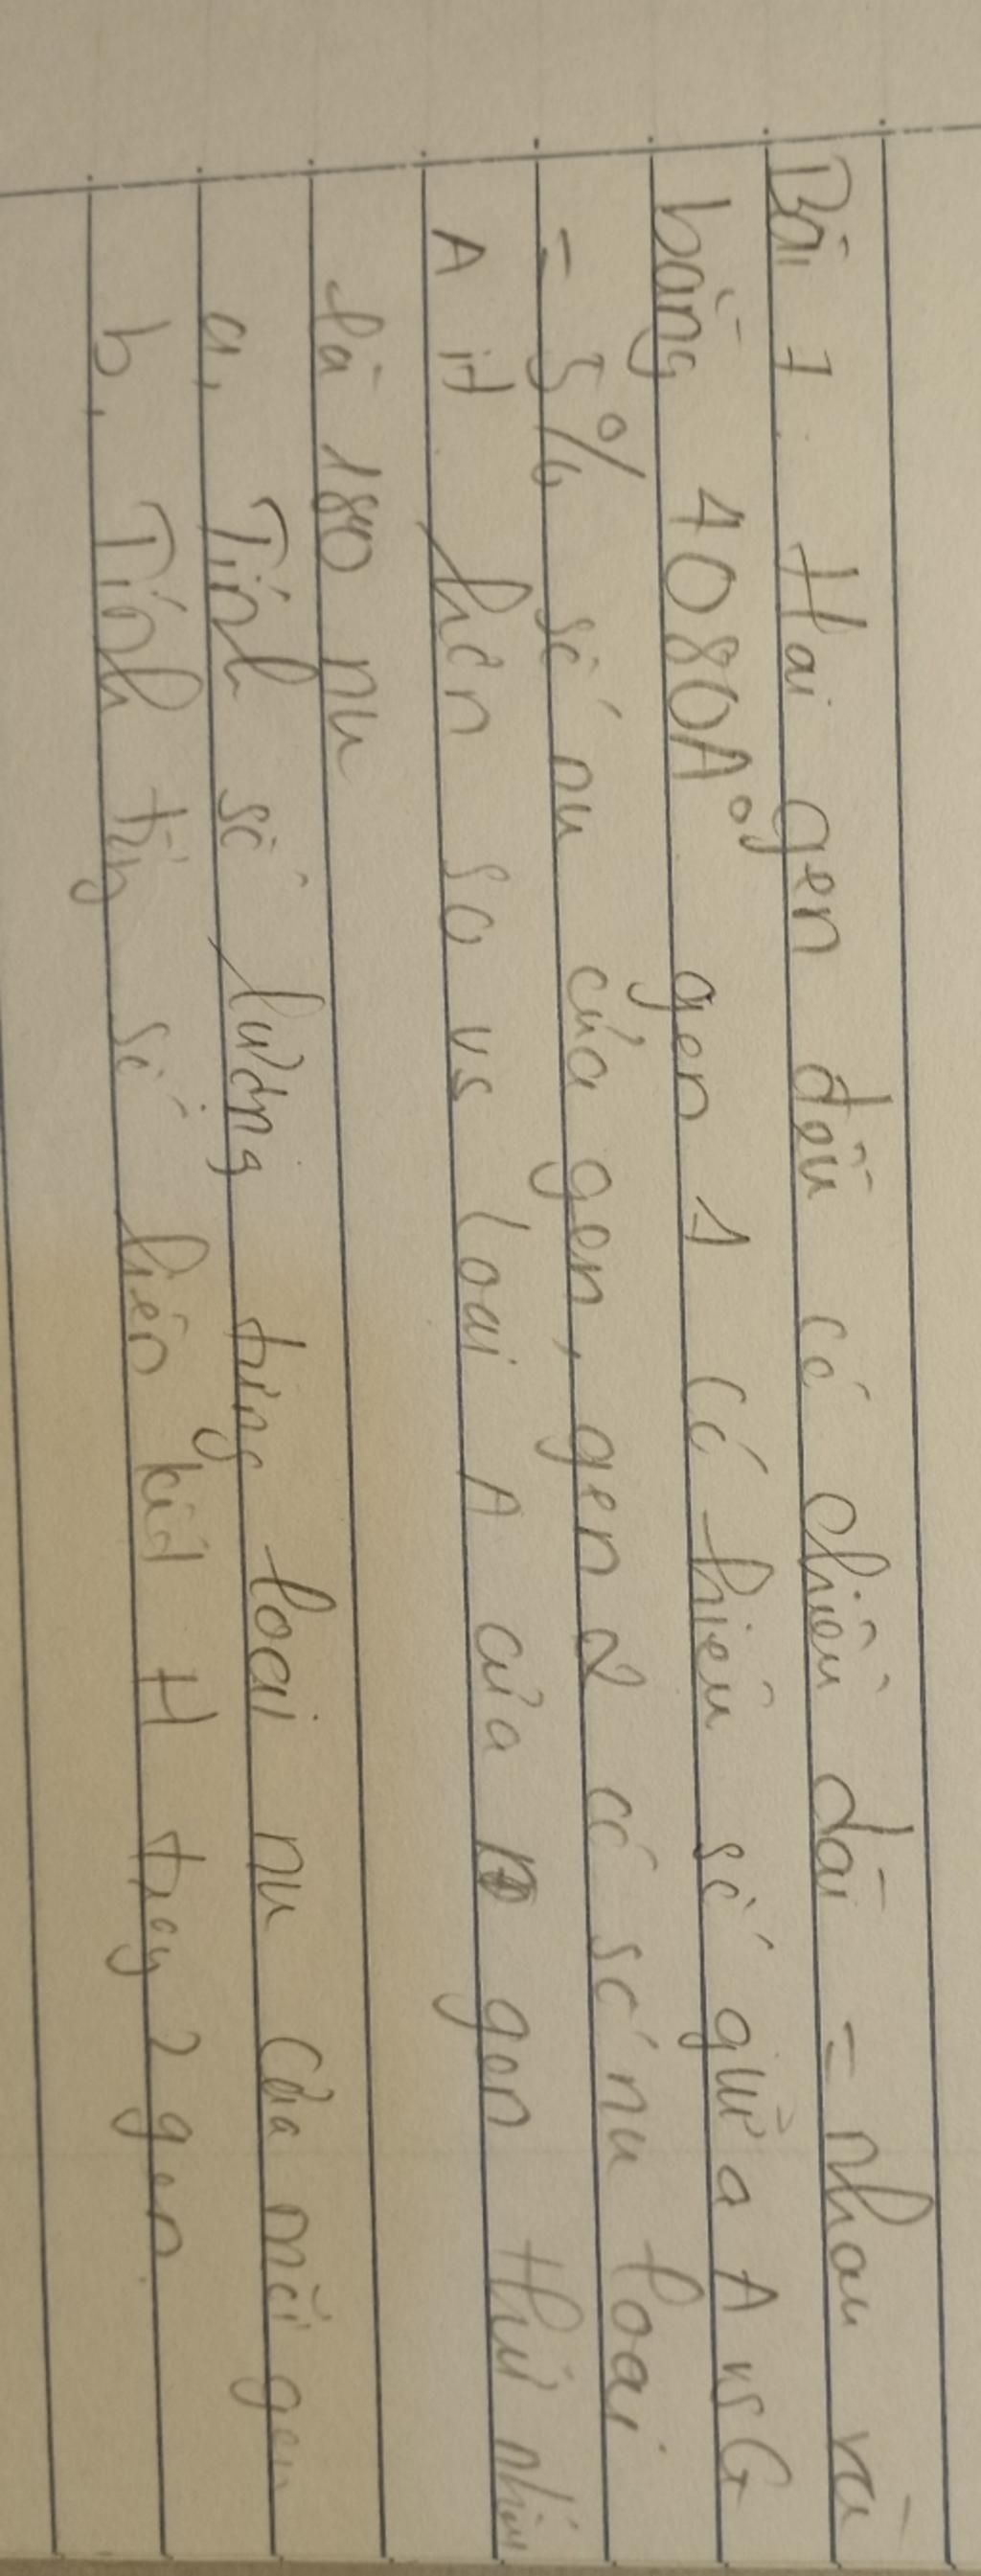 Bài 1. Hai gen đều có chiều dài = nhau và
bằng 4080A°, gen 1 có hiệu số giữa A vs G
= 5% số nu của gen, gen 2 có số nu loại
A ít hơn so vs loại A của gen thứ nhất
là 180 nu
a, Tính số lượng từng loại nu của mỗi gen
b, Tính tổng số liên kết H trong 2 gen.